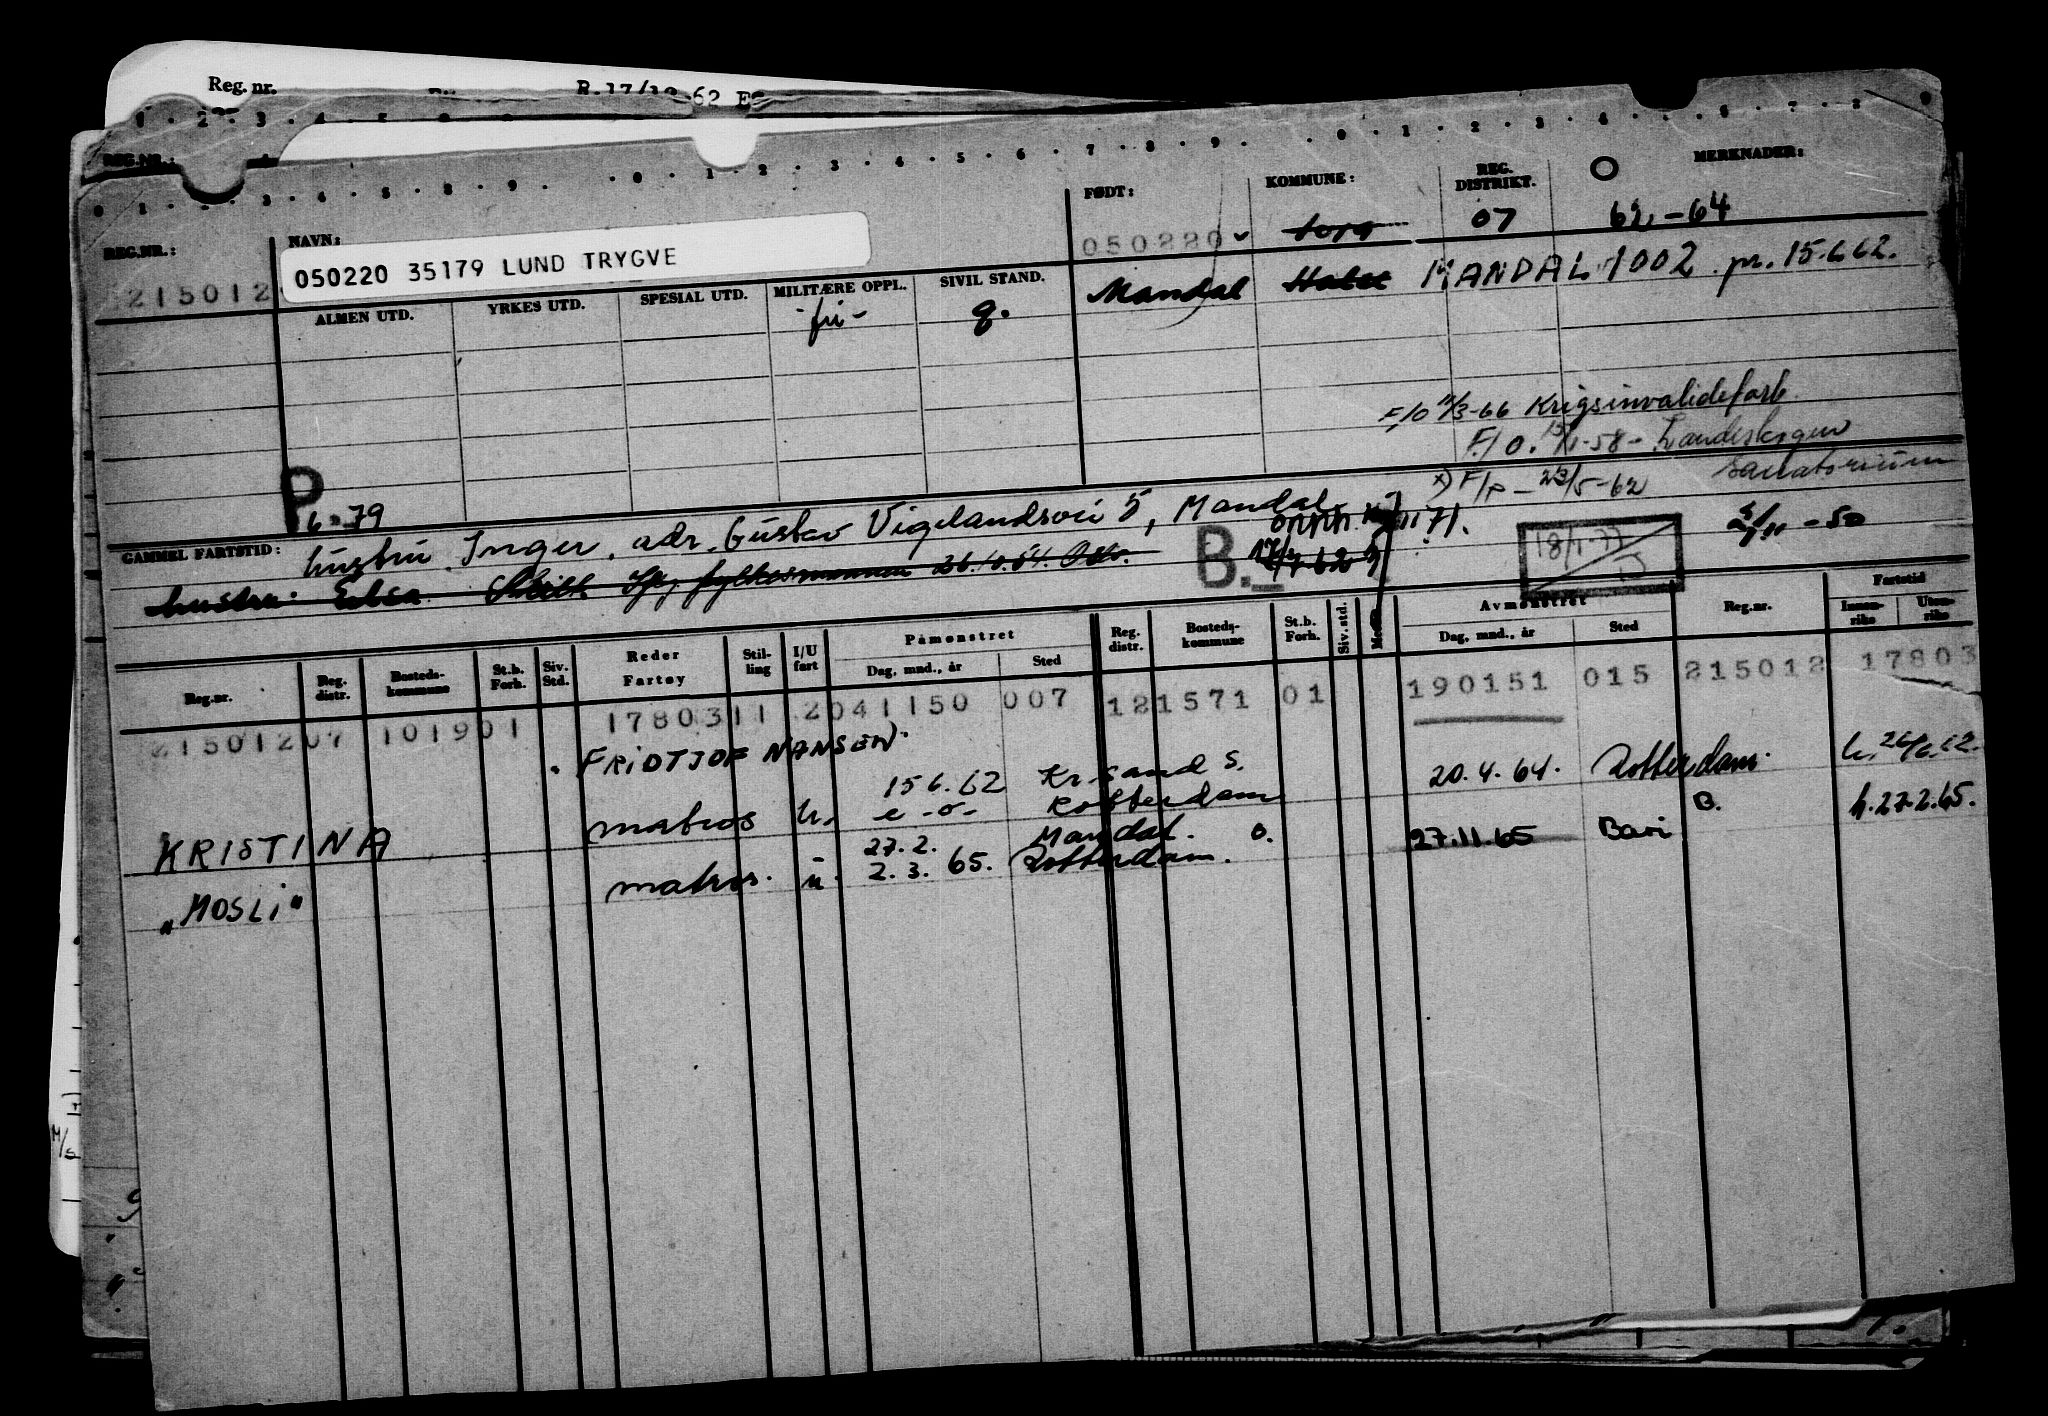 Reg. nr.
R.17/12-62 E
REG.NR.:
REG.NR.: NAVN: FØDT: KOMMUNE: REG. DISTRIKT. MERKNADER:
050220 35179 LUND TRYGVE
050220 07 62-64
215012
ALMEN UTD. YRKES UTD. SPESIAL UTD. MILITÆRE OPPL. SIVIL STAND.
-fri- g. Mandal MANDAL 1002 pr. 15.6.62.
F/O 11/3-66 Krigsinvalideforb.
F/O. 15/1-58- Landeskogen
x) F/P - 23/5-62 Sanatorium
P
6-79
GAMMEL FARTSTID: hustru Inger, adr. Gustav Vigelandsvei 5, Mandal
B. 18/1-77
Reg.nr. Reg. distr. Bosteds-kommune St.b. Forh. Siv. Std. Reder Fartøy Stil-ling I/U fart Påmønstret Dag, mnd., år Sted Reg. distr. Bosteds-kommune St.b. Forh. Siv. std. Avmønstret Dag, mnd., år Sted Reg.nr. Fartstid Innen-riks Uten-riks
21501207 101901 1780311 2041150 007 121571 01 190151 015 215012 17803
FRIDTJOF NANSEN
KRISTINA matros u. 15.6.62 Kr.sand S. 20.4.64. Rotterdam. h. 26/6.62.
e -o- Rotterdam
"MOSLI" matros. u. 27.2. Mandal. o. 27.11.65 Bari B. h.27.2.65.
2.3.65. Rotterdam.